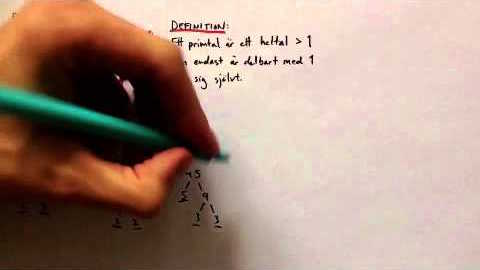 DEFINITION:
Ett primtal är ett heltal > 1
endast är delbart med 1
sig självt.
45
5 9
3 3
2 2
3 3